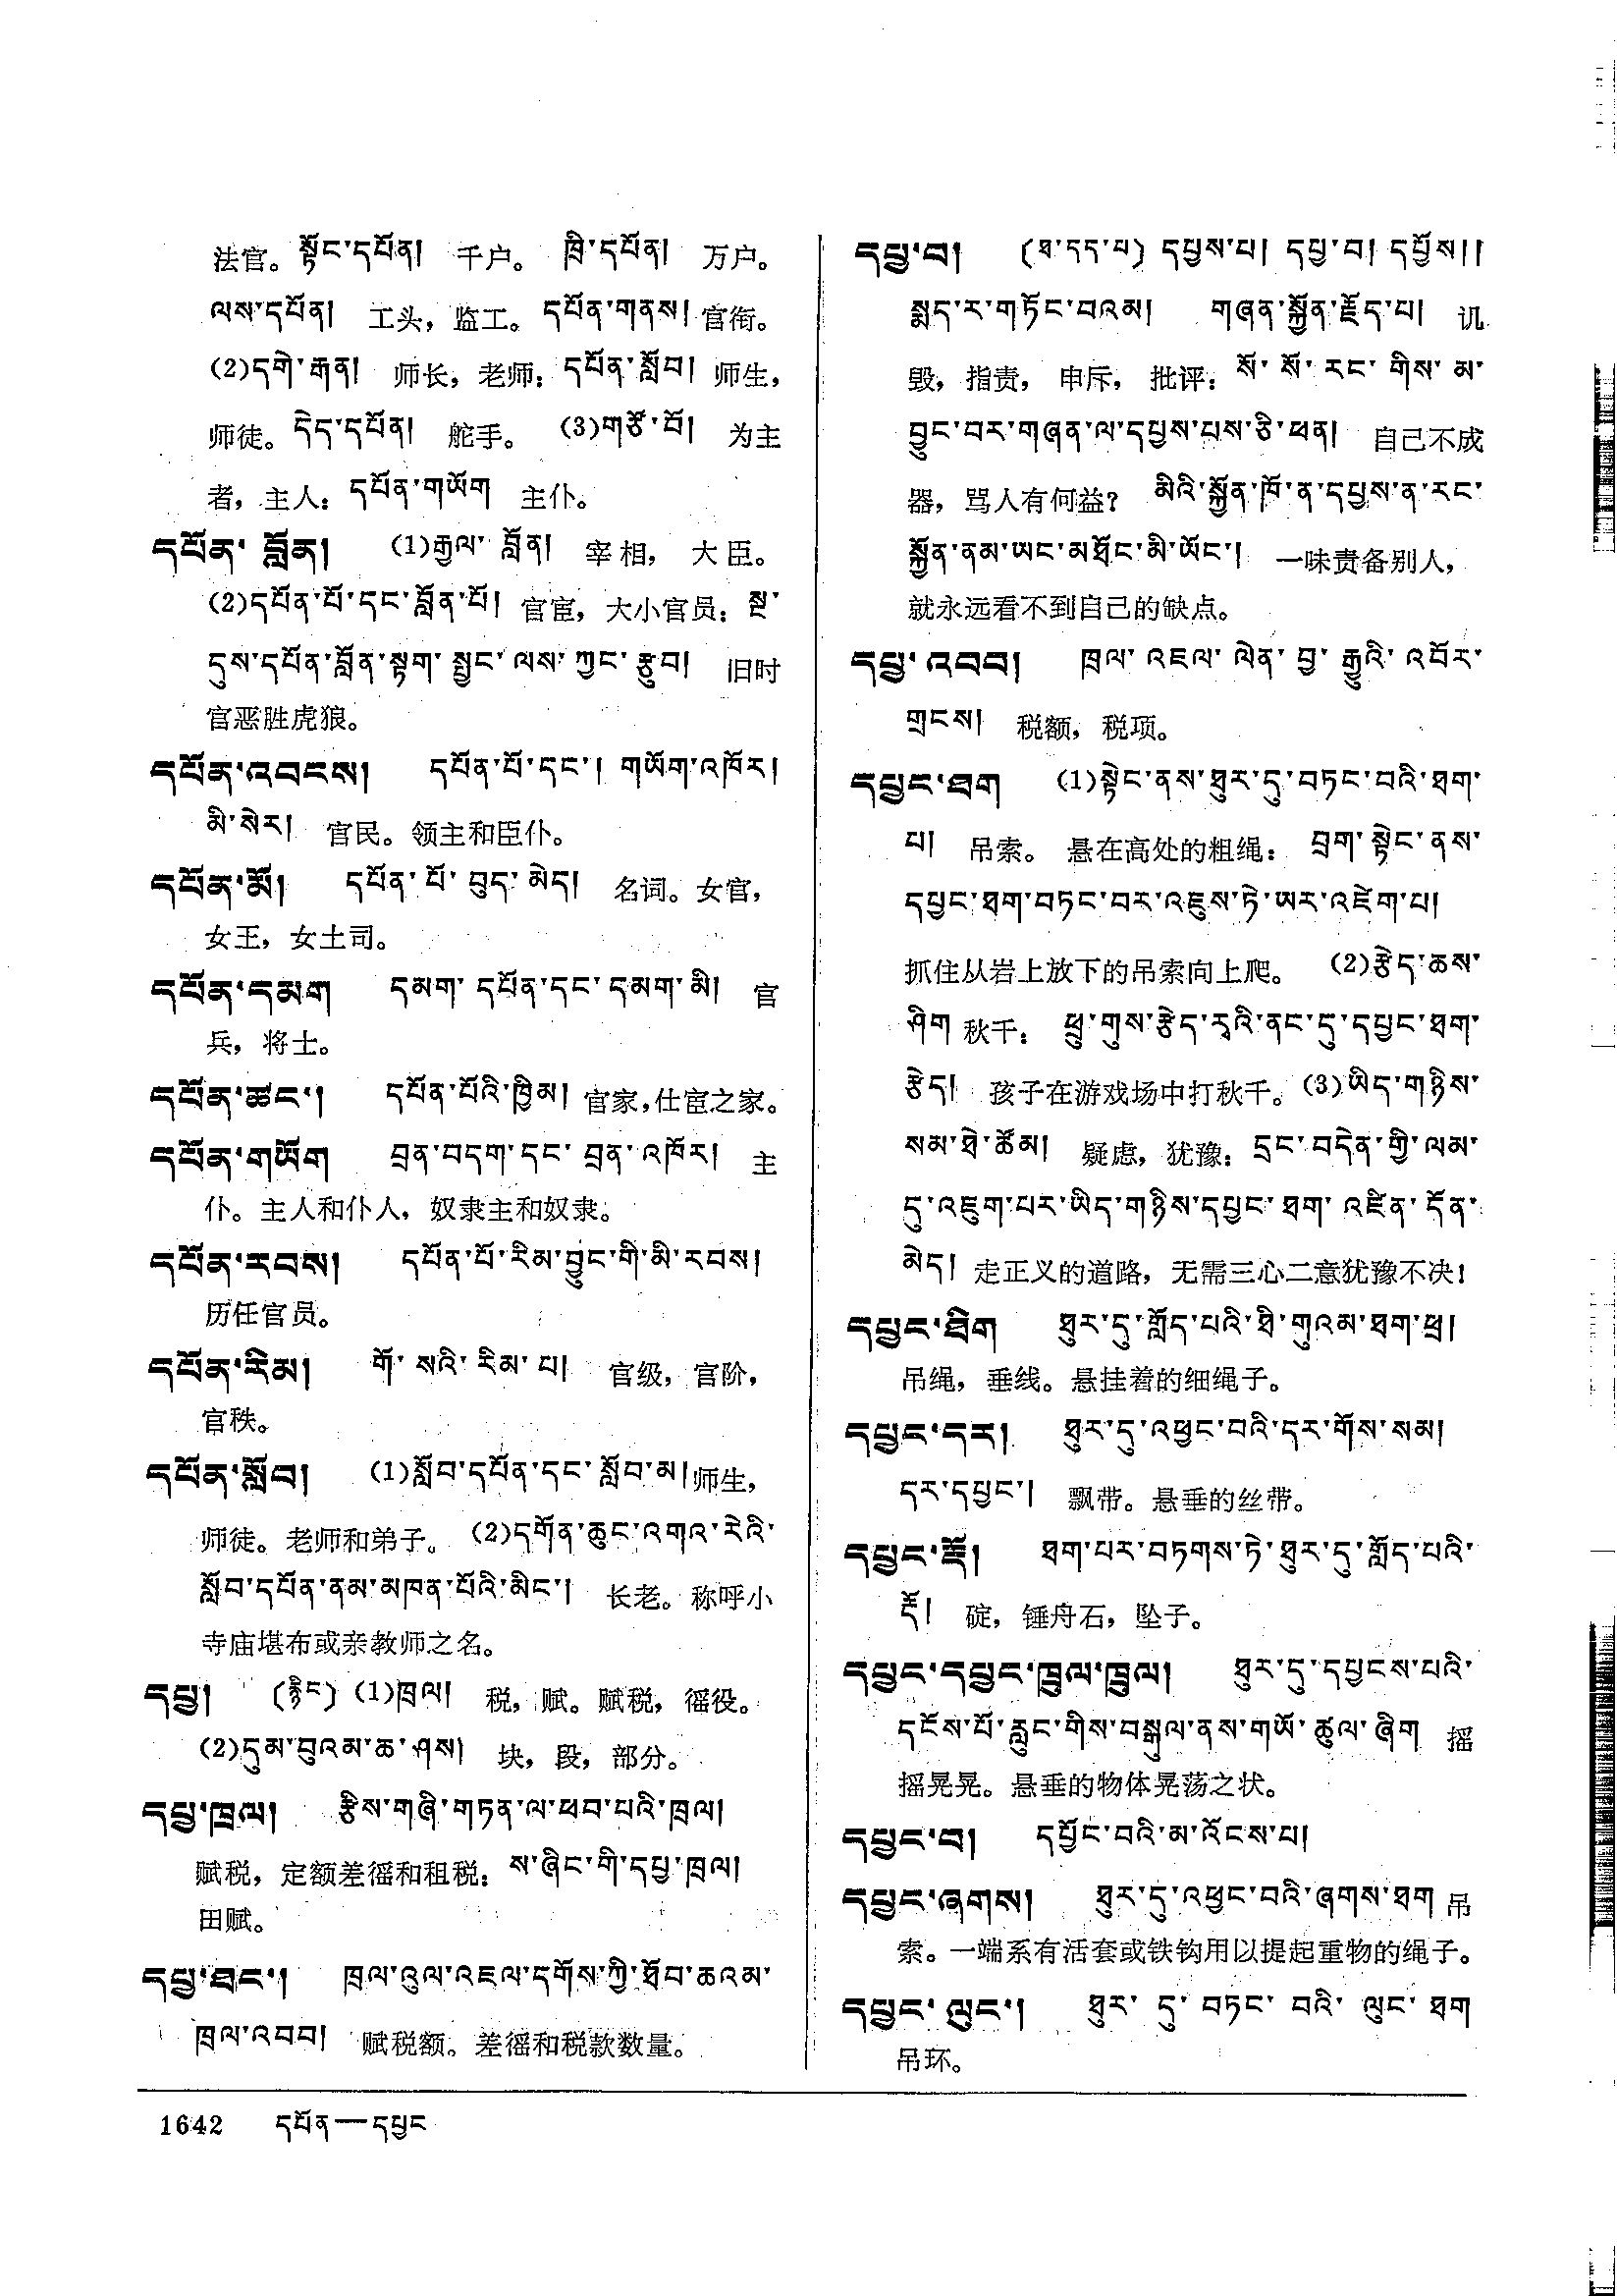 法官。སྟོང་དཔོན། 千户。 ཁྲི་དཔོན། 万户。
ལས་དཔོན། 工头，监工。དཔོན་གནས། 官衔。
(2)དགེ་རྒན། 师长，老师：དཔོན་སློབ། 师生，
师徒。དེད་དཔོན། 舵手。 (3)གཙོ་བོ། 为主
者，主人：དཔོན་གཡོག 主仆。
དཔོན་བློན། (1)རྒྱལ་བློན། 宰相，大臣。
(2)དཔོན་པོ་དང་བློན་པོ། 官宦，大小官员：སྔ་
དུས་དཔོན་བློན་སྟག་སྤྱང་ལས་ཀྱང་རྩུབ། 旧时
官恶胜虎狼。
དཔོན་འབངས། དཔོན་པོ་དང་། གཡོག་འཁོར།
མི་སེར། 官民。领主和臣仆。
དཔོན་མོ། དཔོན་པོ་བུད་མེད། 名词。女官，
女王，女土司。
དཔོན་དམག དམག་དཔོན་དང་དམག་མི། 官
兵，将士。
དཔོན་ཚང་། དཔོན་པོའི་ཁྱིམ། 官家，仕宦之家。
དཔོན་གཡོག བྲན་བདག་དང་བྲན་འཁོར། 主
仆。主人和仆人，奴隶主和奴隶。
དཔོན་རབས། དཔོན་པོ་རིམ་བྱུང་གི་མི་རབས།
历任官员。
དཔོན་རིམ། གོ་སའི་རིམ་པ། 官级，官阶，
官秩。
དཔོན་སློབ། (1)སློབ་དཔོན་དང་སློབ་མ། 师生，
师徒。老师和弟子。 (2)དགོན་ཆུང་འགའ་རེའི་
སློབ་དཔོན་ནམ་མཁན་པོའི་མིང་། 长老。称呼小
寺庙堪布或亲教师之名。
དཔྱ། (རྙིང) (1)ཁྲལ། 税，赋。赋税，徭役。
(2)དུམ་བུའམ་ཆ་ཤས། 块，段，部分。
དཔྱ་ཁྲལ། རྩིས་གཞི་གཏན་ལ་ཕབ་པའི་ཁྲལ།
赋税，定额差徭和租税：ས་ཞིང་གི་དཔྱ་ཁྲལ།
田赋。
དཔྱ་ཐང་། ཁྲལ་འུལ་འཇལ་དགོས་ཀྱི་ཐོབ་ཆའམ་
ཁྲལ་འབབ། 赋税额。差徭和税款数量。
དཔྱ་བ། (ཐ་དད་པ) དཔྱས་པ། དཔྱ་བ། དཔྱོས།།
སྨད་ར་གཏོང་བའམ། གཞན་སྐྱོན་རྗོད་པ། 讥
毁，指责，申斥，批评：སོ་སོ་རང་གིས་མ་
བྱུང་བར་གཞན་ལ་དཔྱས་པས་ཅི་ཕན། 自己不成
器，骂人有何益？ མིའི་སྐྱོན་ཁོ་ན་དཔྱས་ན་རང་
སྐྱོན་ནམ་ཡང་མཐོང་མི་ཡོང་། 一味责备别人，
就永远看不到自己的缺点。
དཔྱ་འབབ། ཁྲལ་འཇལ་ལེན་བྱ་རྒྱུའི་འབོར་
གྲངས། 税额，税项。
དཔྱང་ཐག (1)སྟེང་ནས་ཐུར་དུ་བཏང་བའི་ཐག་
པ། 吊索。悬在高处的粗绳：བྲག་སྟེང་ནས་
དཔྱང་ཐག་བཏང་བར་འཇུས་ཏེ་ཡར་འཛེག་པ།
抓住从岩上放下的吊索向上爬。 (2)རྩེད་ཆས་
ཤིག 秋千：ཕྲུ་གུས་རྩེད་རྭའི་ནང་དུ་དཔྱང་ཐག་
རྩེད། 孩子在游戏场中打秋千。(3)ཡིད་གཉིས་
སམ་ཐེ་ཚོམ། 疑虑，犹豫：དྲང་བདེན་གྱི་ལམ་
དུ་འཇུག་པར་ཡིད་གཉིས་དཔྱང་ཐག་འཛིན་དོན་
མེད། 走正义的道路，无需三心二意犹豫不决！
དཔྱང་ཐིག ཐུར་དུ་གློད་པའི་ཐི་གུའམ་ཐག་ཕྲ།
吊绳，垂线。悬挂着的细绳子。
དཔྱང་དར། ཐུར་དུ་འཕྱང་བའི་དར་གོས་སམ།
དར་དཔྱང་། 飘带。悬垂的丝带。
དཔྱང་རྡོ། ཐག་པར་བཏགས་ཏེ་ཐུར་དུ་གློད་པའི་
རྡོ། 碇，锤舟石，坠子。
དཔྱང་དཔྱང་ཁྲུལ་ཁྲུལ། ཐུར་དུ་དཔྱངས་པའི་
དངོས་པོ་རླུང་གིས་བསྒུལ་ནས་གཡོ་ཚུལ་ཞིག 摇
摇晃晃。悬垂的物体晃荡之状。
དཔྱང་བ། དཔྱོང་བའི་མ་འོངས་པ།
དཔྱང་ཞགས། ཐུར་དུ་འཕྱང་བའི་ཞགས་ཐག 吊
索。一端系有活套或铁钩用以提起重物的绳子。
དཔྱང་ལུང་། ཐུར་དུ་བཏང་བའི་ལུང་ཐག
吊环。
1642 དཔོན—དཔྱང